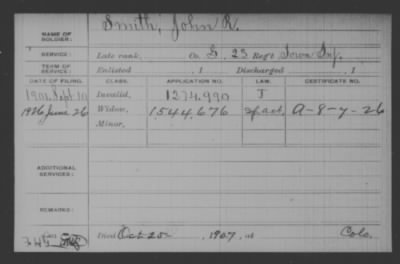 NAME OF SOLDIER: Smith, John R.
SERVICE: Late rank, Co. G, 23 Reg't Iowa Inf.
TERM OF SERVICE: Enlisted , 1 Discharged , 1
DATE OF FILING. CLASS. APPLICATION NO. LAW. CERTIFICATE NO.
1901, Sept. 10 Invalid, 1274.990 J
1926 June 26 Widow, 1544,676 A-8-7-26
Minor,
ADDITIONAL SERVICES:
REMARKS:
Died Oct 25 , 1907, at Colo.